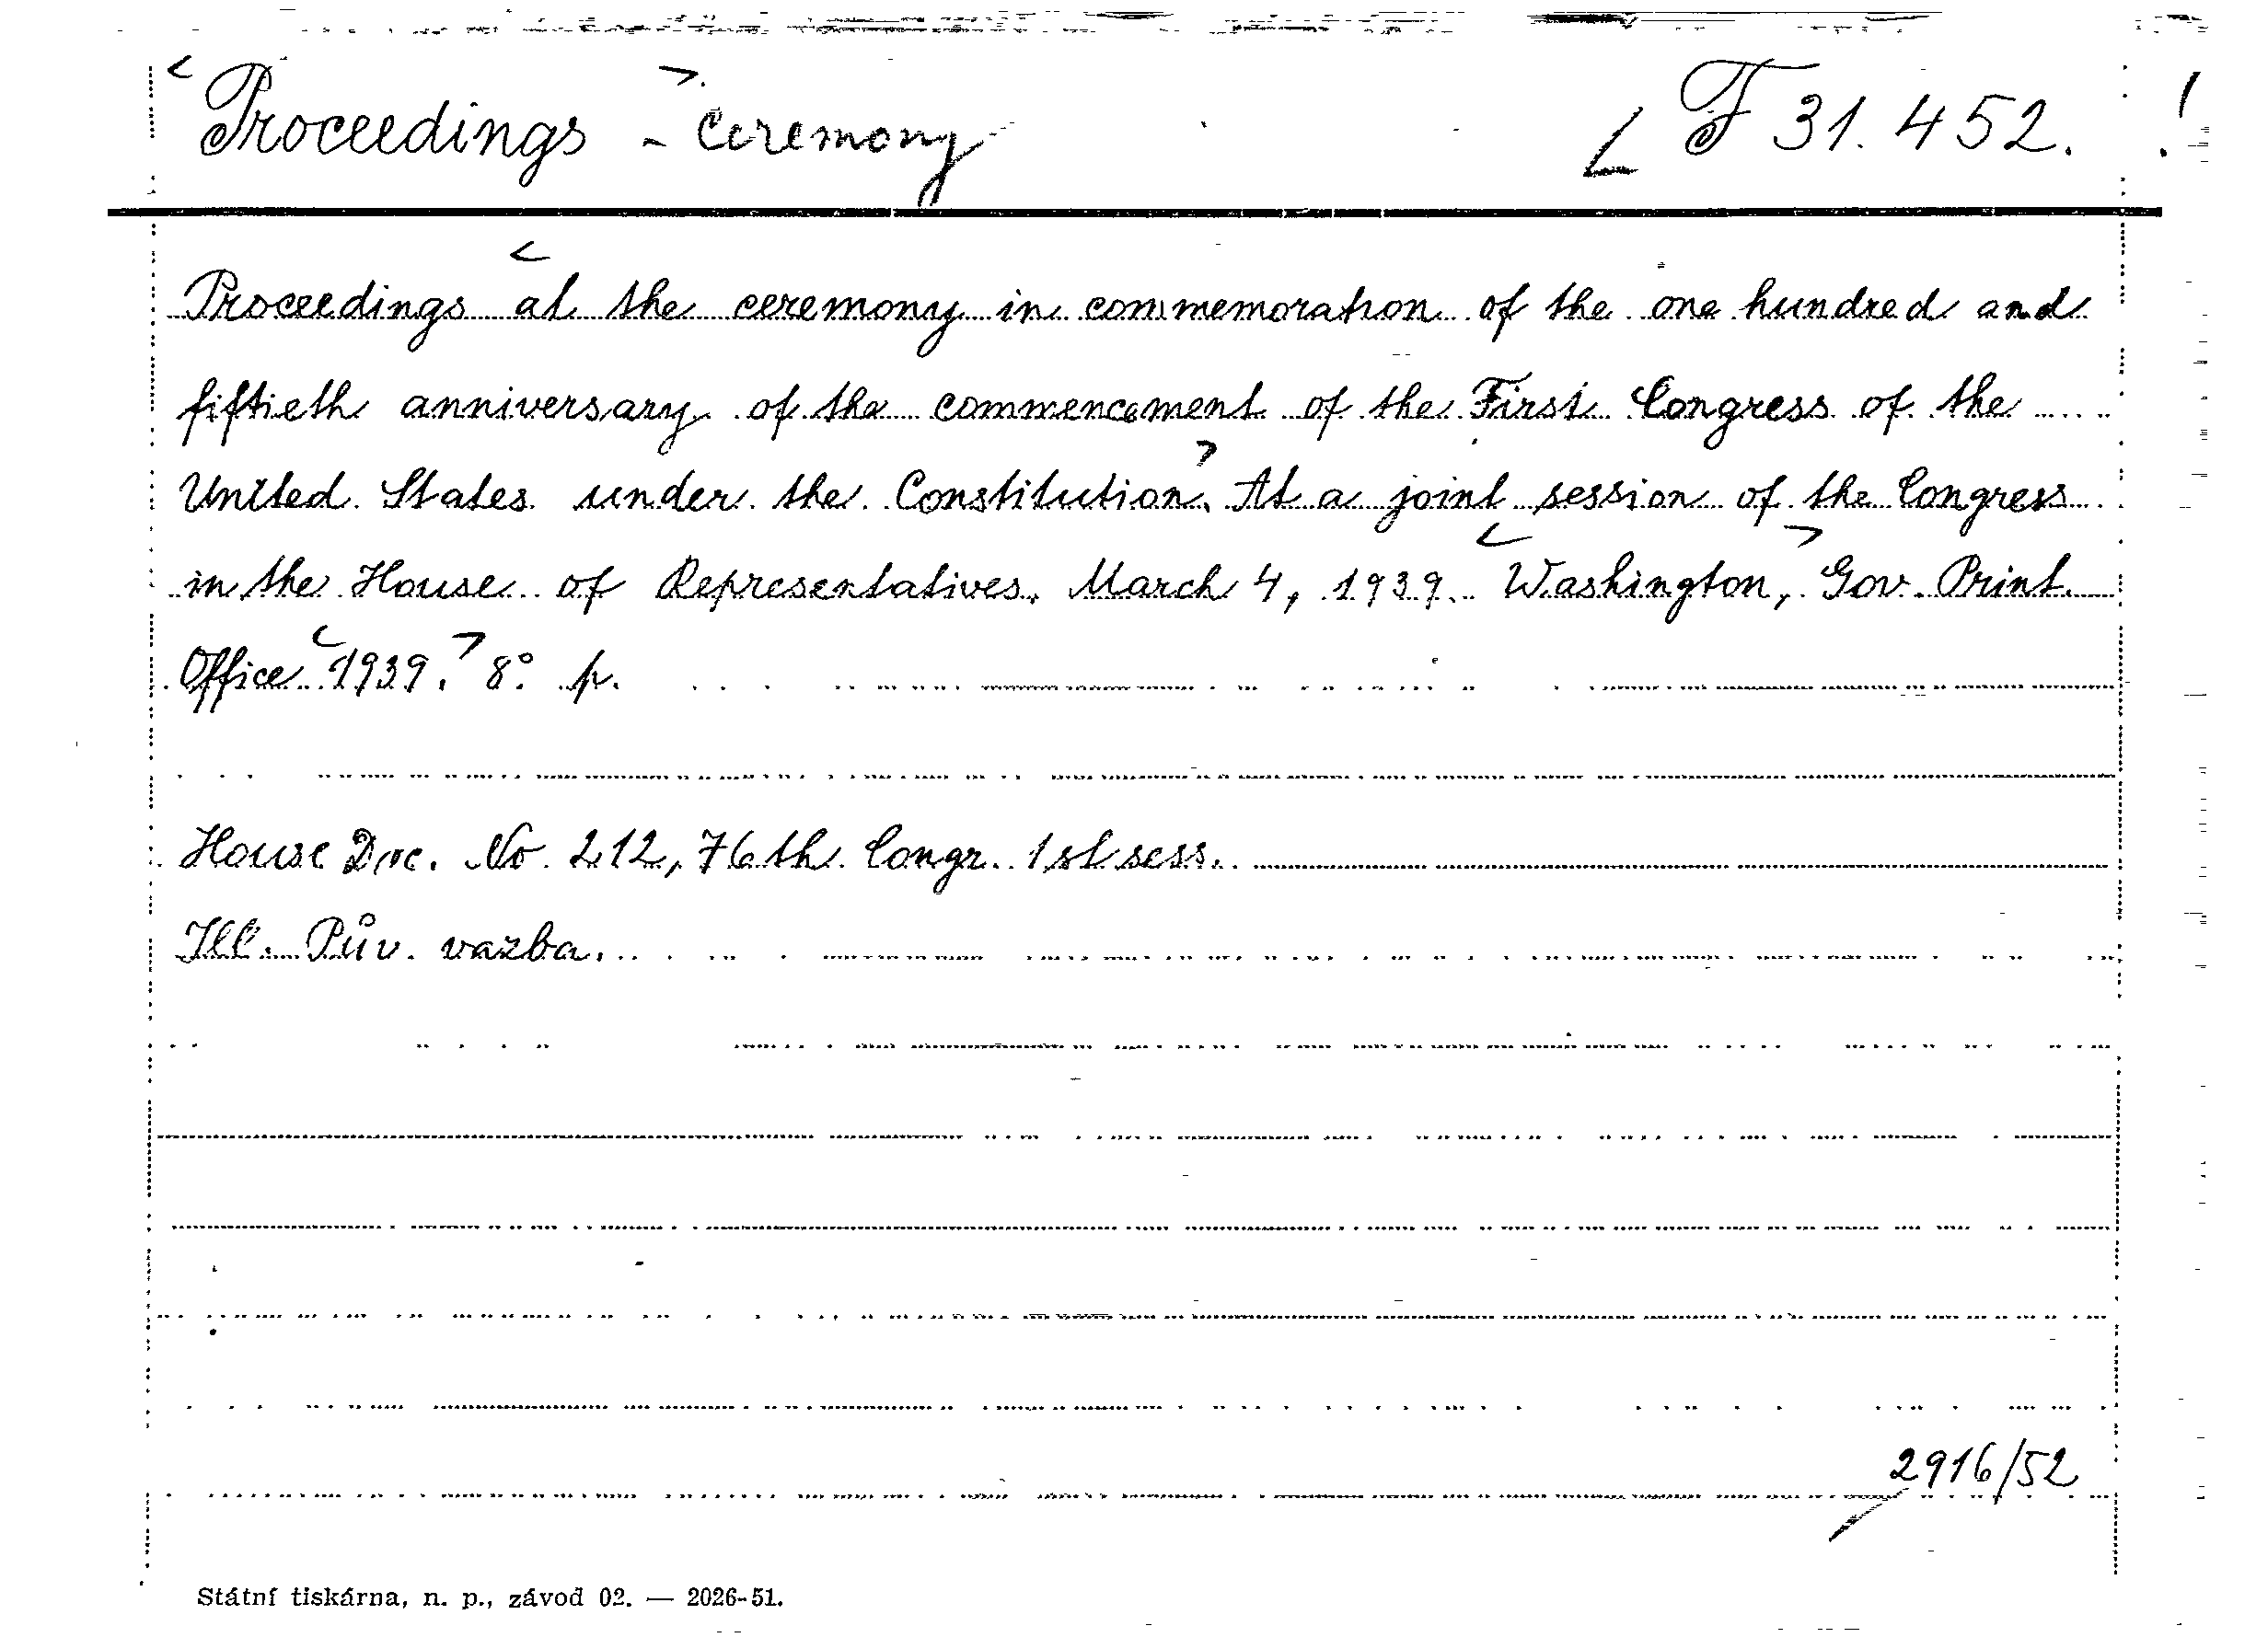 Proceedings - ceremony F 31.452.
Proceedings at the ceremony in commemoration of the one hundred and
fiftieth anniversary of the commencement of the First Congress of the
United States under the Constitution. At a joint session of the Congress
in the House of Representatives. March 4, 1939. Washington, Gov. Print.
Office 1939. 8° p.
House Doc. No 212, 76th Congr. 1st sess.
Ill. Pův. vazba.
2916/52
Státní tiskárna, n. p., závod 02. — 2026-51.